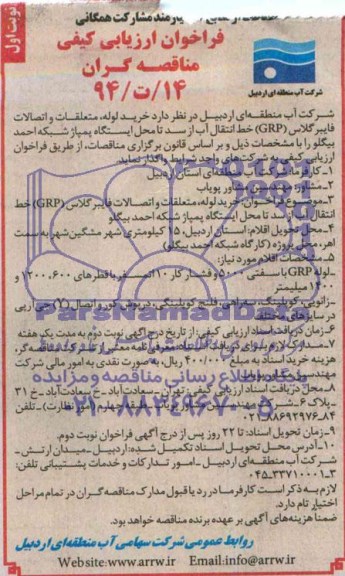 نوبت اول
مشارکت همگانی
فراخوان ارزیابی کیفی
مناقصه گران
۹۴/ت/۱۴
شرکت آب منطقه ای اردبیل
شرکت آب منطقه‌ای اردبیل در نظر دارد خرید لوله، متعلقات و اتصالات
فایبر گلاس (GRP) خط انتقال آب از سد تا محل ایستگاه پمپاژ شبکه احمد
بیگلو را با مشخصات ذیل و بر اساس قانون برگزاری مناقصات، از طریق فراخوان
ارزیابی کیفی به شرکت‌های واجد شرایط واگذار نماید.
۱-کارفرما: شرکت آب منطقه‌ای استان اردبیل
۲-مشاور: مهندسین مشاور پویاب
۳-موضوع فراخوان: خرید لوله، متعلقات و اتصالات فایبر گلاس (GRP) خط
انتقال آب از سد تا محل ایستگاه پمپاژ شبکه احمد بیگلو
۴-محل تحویل اقلام: استان اردبیل، ۱۵ کیلومتری شهر مشگین شهر به سمت
اهر، محل پروژه (کارگاه شبکه احمد بیگلو)
۵-مشخصات اقلام مورد نیاز:
-لوله GRP با سفتی ۵۰۰۰ و فشار کار ۱۰ اتمسفر با قطرهای ۶۰۰، ۱۲۰۰ و
۱۴۰۰ میلیمتر
-زانویی، کوپلینگ، سه‌راهی، فلنج کوپلینگی، درپوش کور و اتصال (Y) جی آر پی
در سایزهای مختلف
۶-زمان دریافت اسناد ارزیابی کیفی: از تاریخ درج آگهی نوبت دوم به مدت یک هفته
۷-مدارک لازم برای دریافت اسناد: معرفی‌نامه کتبی از شرکت مناقصه‌گر،
هزینه خرید اسناد به مبلغ ۴۰۰/۰۰۰ ریال، به صورت نقدی به امور مالی شرکت
مهندسین مشاور پویاب
۸-محل دریافت اسناد ارزیابی کیفی: تهران- سعادت‌آباد - خ سعادت‌آباد - خ ۳۱
-پلاک ۶ - شرکت مهندسین مشاور پویاب - طبقه چهارم (امور نظارت) - تلفن
۸۸۶۹۲۹۷۶-۸۴ ۰۲۱
۹-زمان تحویل اسناد: تا ۲۲ روز پس از درج آگهی فراخوان نوبت دوم.
۱۰-آدرس محل تحویل اسناد تکمیل شده: اردبیل - میدان ارتش -
شرکت آب منطقه‌ای اردبیل - امور تدارکات و خدمات پشتیبانی تلفن:
۰۴۵-۳۳۷۱۰۰۰۱-۳
لازم به ذکر است کارفرما در رد یا قبول مدارک مناقصه گران در تمام مراحل
اختیار تام دارد.
ضمناً هزینه‌های آگهی بر عهده برنده مناقصه خواهد بود.
روابط عمومی شرکت سهامی آب منطقه‌ای اردبیل
Website:www.arrw.ir Email:info@arrw.ir
ParsNamadData
پایگاه اطلاع رسانی مناقصه و مزایده
۰۲۱-۸۸۳۴۹۶۷۰-۵